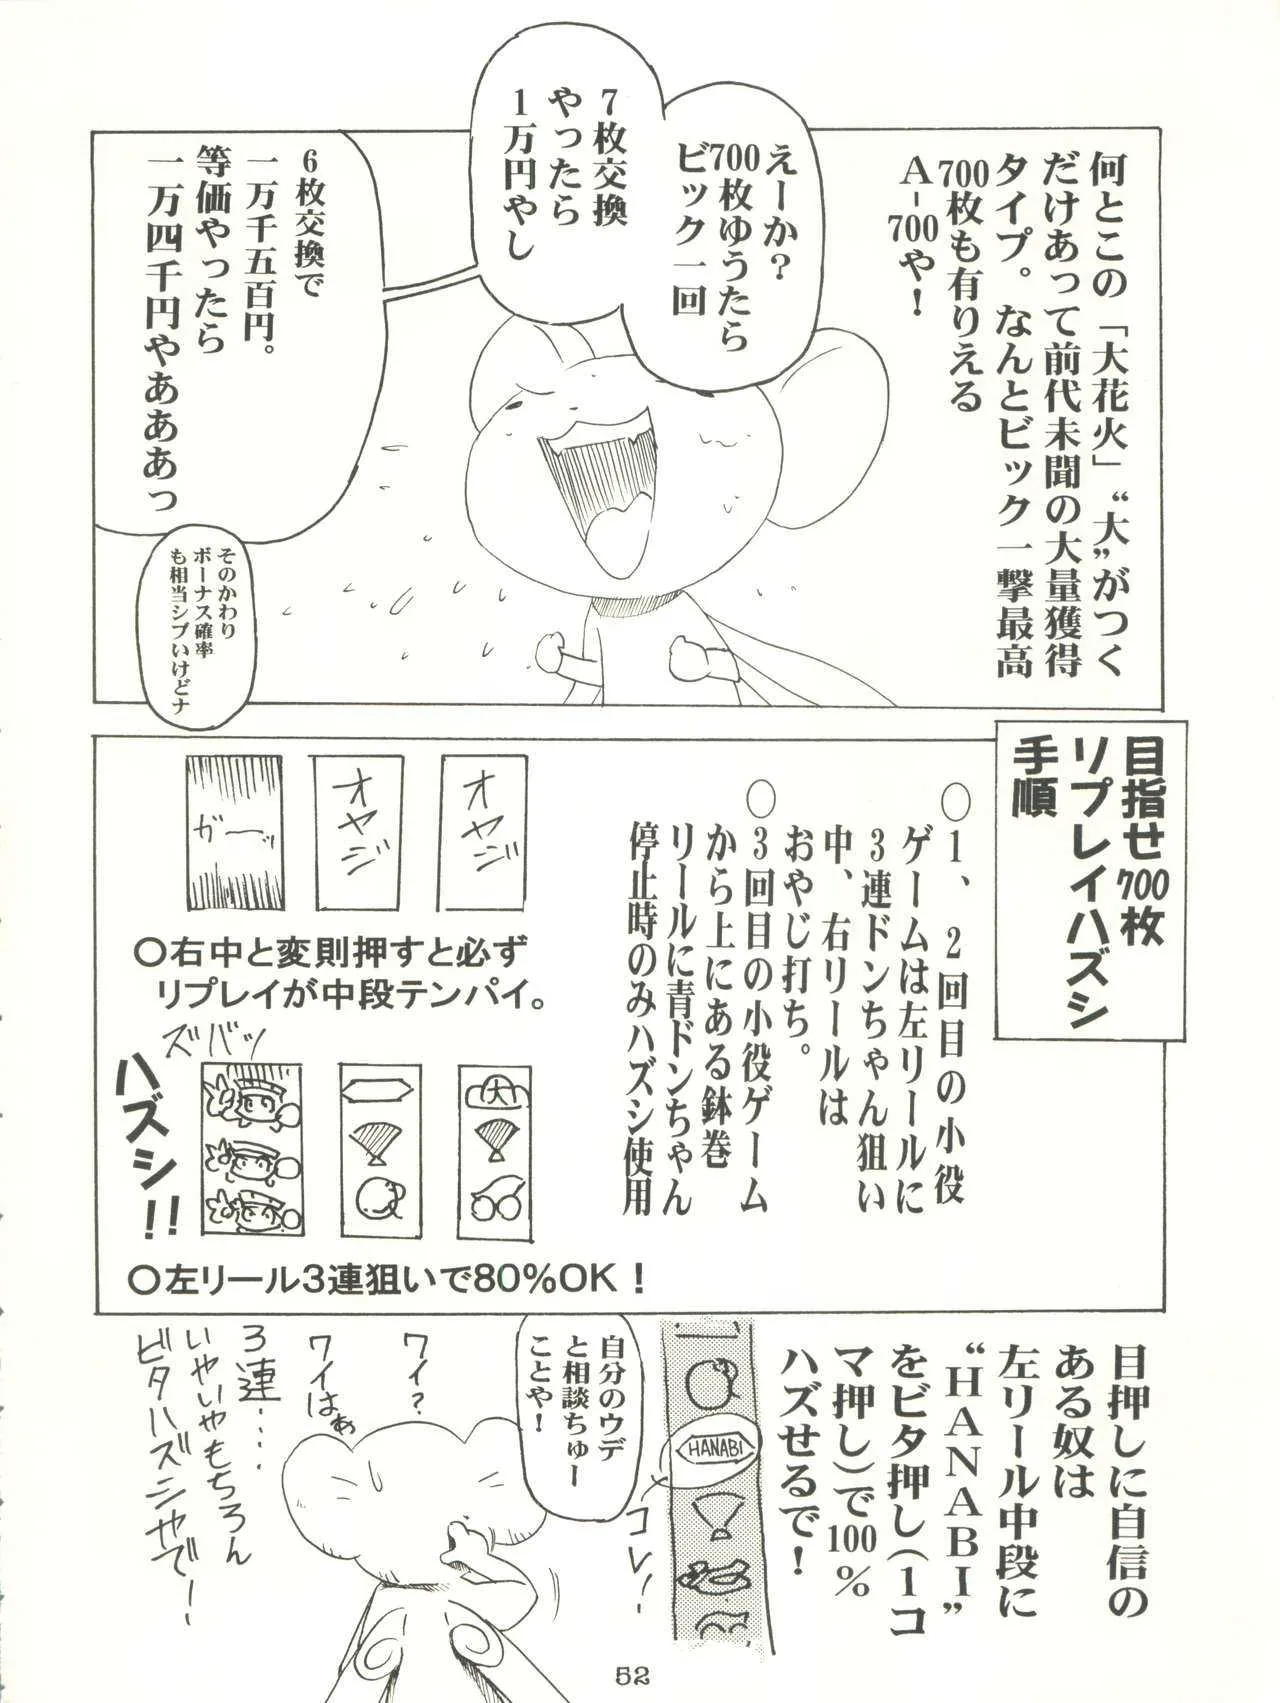 何とこの「大花火」“大”がつく
だけあって前代未聞の大量獲得
タイプ。なんとビック一撃最高
700枚も有りえる
A-700や!
えーか?
700枚ゆうたら
ビック一回
7枚交換
やったら
1万円やし
6枚交換で
一万千五百円。
等価やったら
一万四千円やあああっ
そのかわり
ボーナス確率
も相当シブいけどナ
目指せ700枚
リプレイハズシ
手順
○1、2回目の小役
ゲームは左リールに
3連ドンちゃん狙い
中、右リールは
おやじ打ち。
○3回目の小役ゲーム
から上にある鉢巻
リールに青ドンちゃん
停止時のみハズシ使用
ガーッ
オヤジ
オヤジ
○右中と変則押すと必ず
リプレイが中段テンパイ。
ズバッ
ハズシ!!
大
○左リール3連狙いで80%OK!
目押しに自信の
ある奴は
左リール中段に
“HANABI”
をビタ押し(1コ
マ押し)で100%
ハズせるで!
HANABI
コレ!
自分のウデ
と相談ちゅー
ことや!
ワイ?
ワイはぁ
3連‥‥
いやいやもちろん
ビタハズシやで!
52